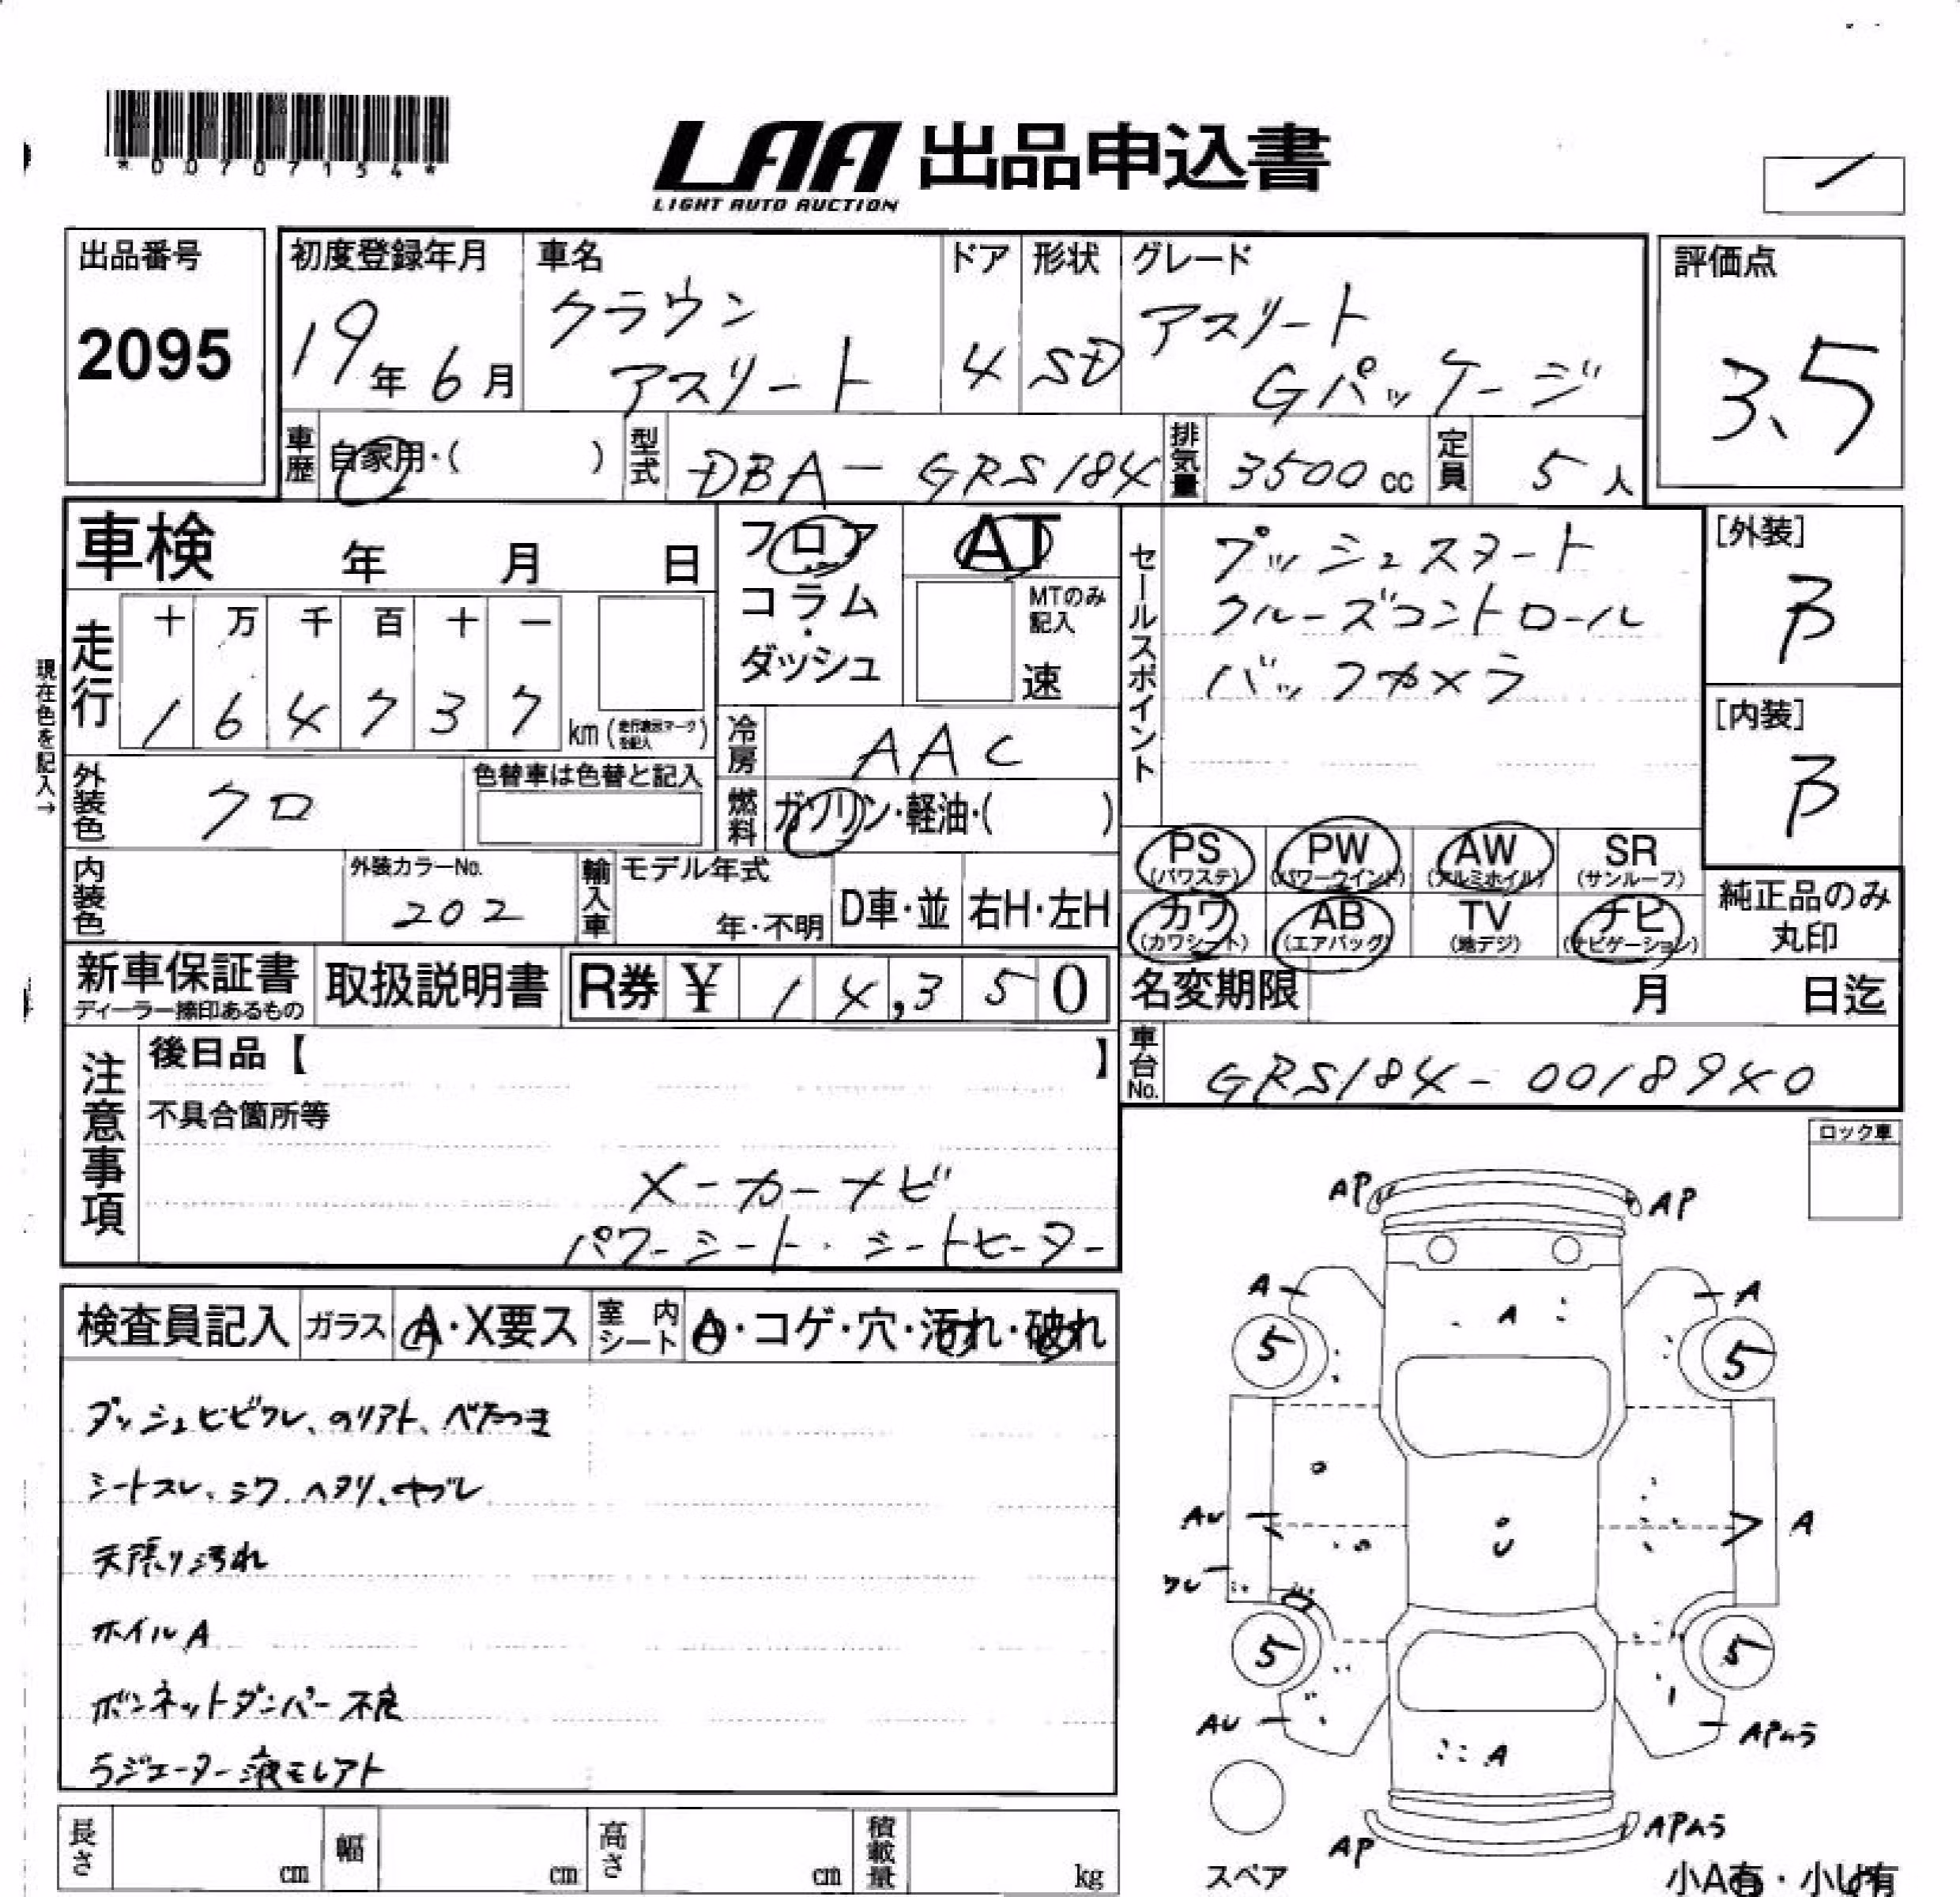 *00707154*
LAA 出品申込書
LIGHT AUTO AUCTION
出品番号
2095
初度登録年月
19年6月
車名
クラウン
アスリート
ドア
4
形状
SD
グレード
アスリート
Gパッケージ
評価点
3.5
車歴
自家用・( )
型式
DBA-GRS184
排気量
3500cc
定員
5人
車検 年 月 日
フロア
コラム
・
ダッシュ
AT
MTのみ
記入
速
セールスポイント
プッシュスタート
クルーズコントロール
バックカメラ
[外装]
B
[内装]
B
現在色を記入→
走行
十 万 千 百 十 一
1 6 4 7 3 7
km(走行表示マークを記入)
冷房
AAC
外装色
クロ
色替車は色替と記入
燃料
ガソリン・軽油・( )
PS
(パワステ)
PW
(パワーウインド)
AW
(アルミホイル)
SR
(サンルーフ)
カワ
(カワシート)
AB
(エアバッグ)
TV
(地デジ)
ナビ
(ナビゲーション)
純正品のみ
丸印
内装色
外装カラーNo.
202
輸入車
モデル年式
年・不明
D車・並
右H・左H
新車保証書
ディーラー捺印あるもの
取扱説明書
R券 ¥ 14,350
名変期限 月 日迄
注意事項
後日品【 】
不具合箇所等
メーカーナビ
パワーシート・シートヒーター
車台No.
GRS184-0018940
ロック車
検査員記入
ガラス
A・X要ス
室内シート
A・コゲ・穴・汚れ・破れ
ダッシュヒビワレ、のリアト、ベたつき
シートスレ、シワ、ヘタリ、ヤブレ
天張り汚れ
ホイルA
ボンネットダンパー不良
ラジエーター液モレアト
AP
AP
A
A
A
5
5
AU
U
A
ワレ
5
5
AU
A
APムラ
AP
APムラ
スペア
小A有・小U有
長さ cm
幅 cm
高さ cm
積載量 kg